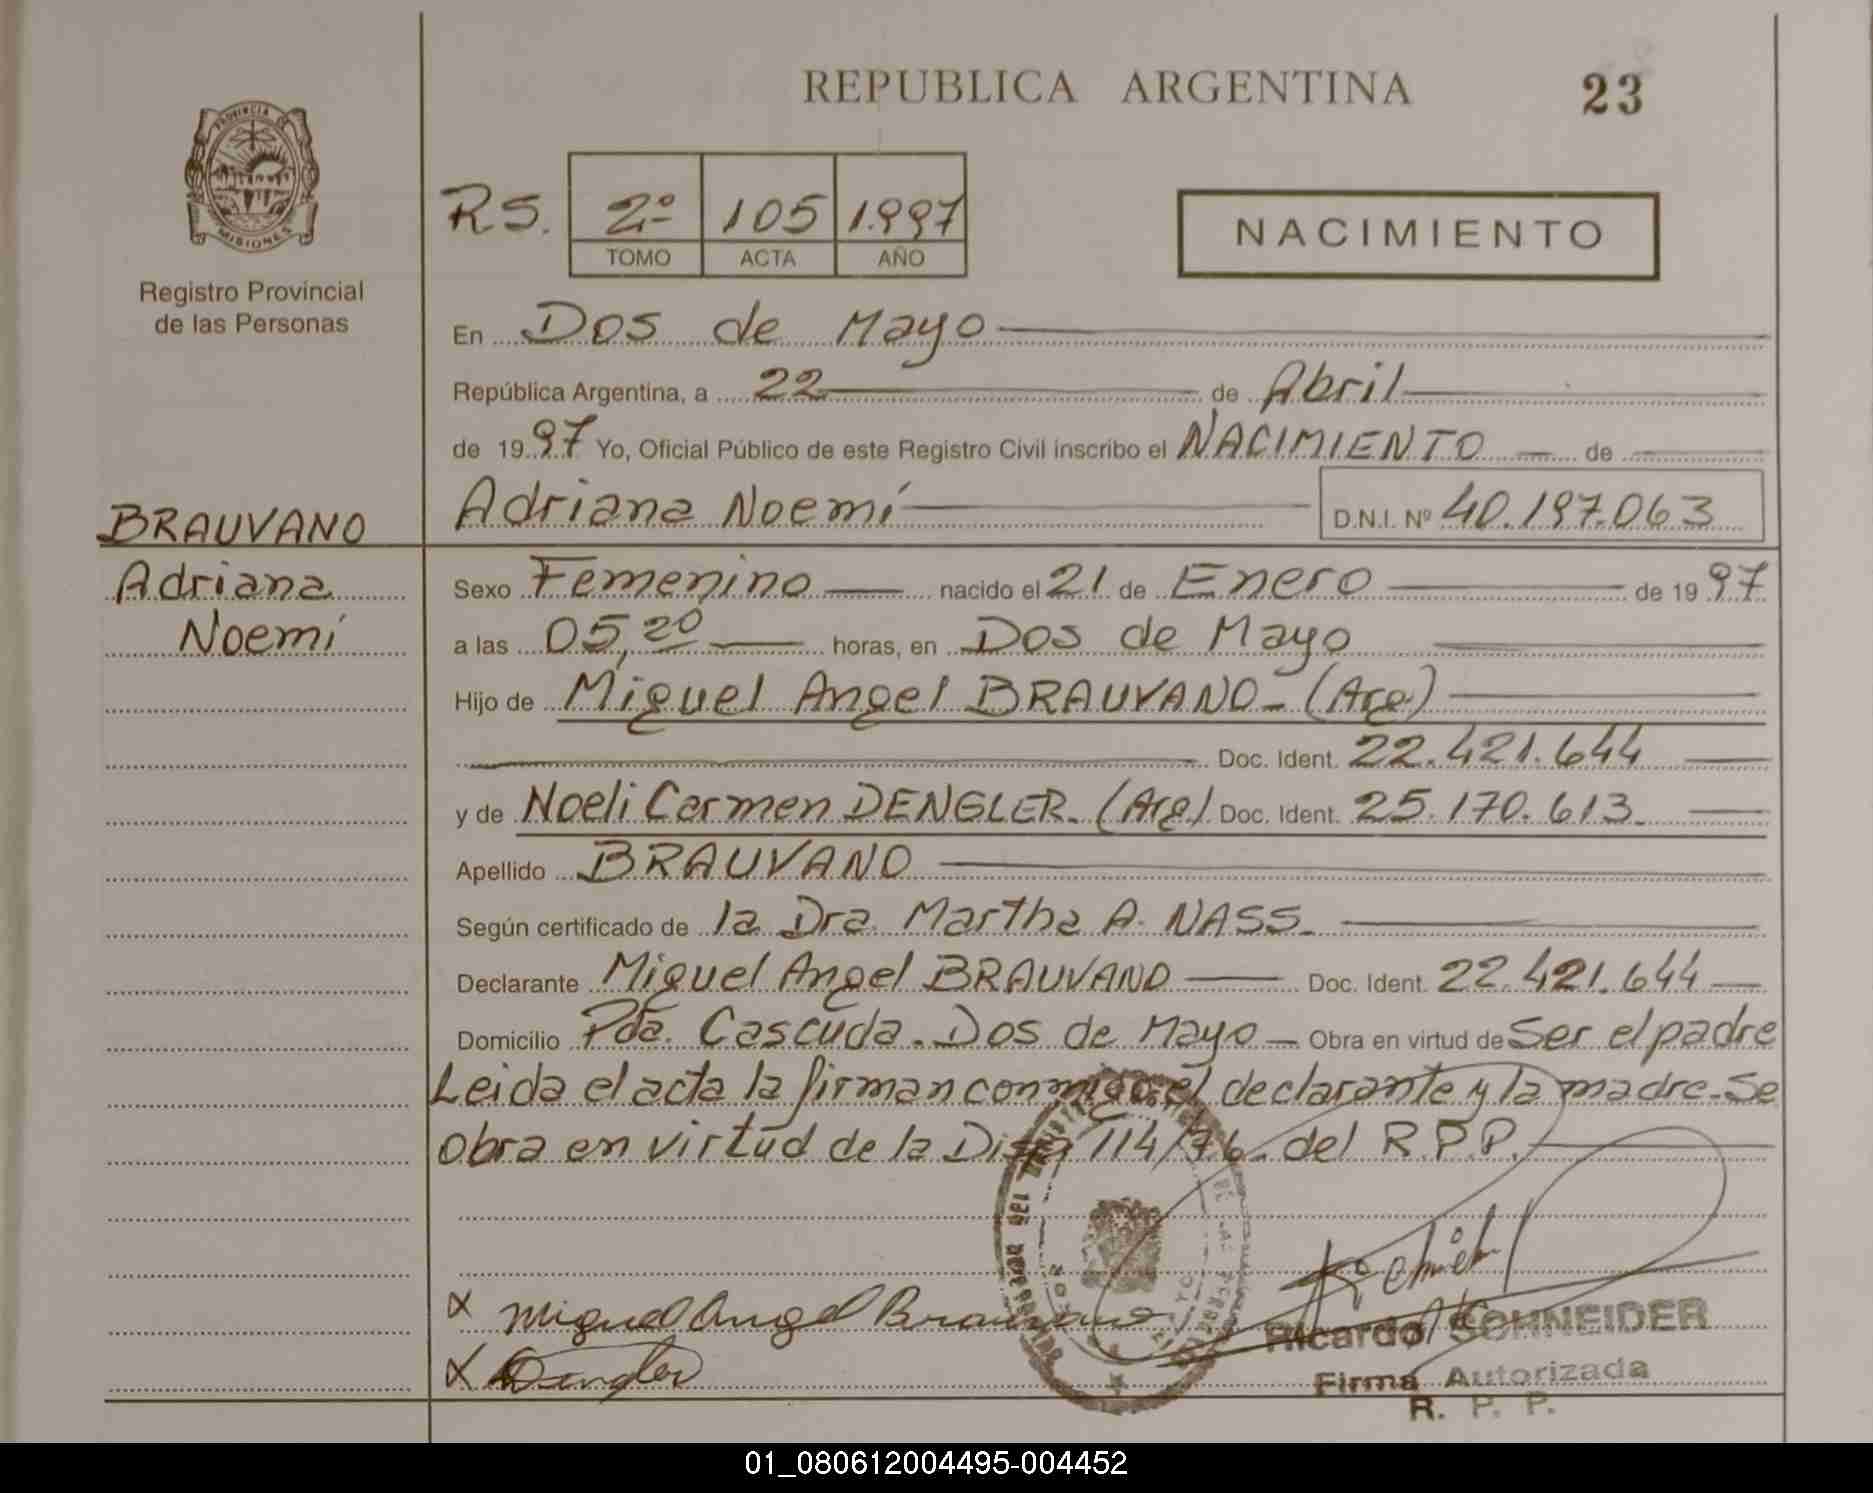 REPUBLICA ARGENTINA 23
PROVINCIA DE
MISIONES
Registro Provincial
de las Personas
RS. 2º 105 1.997
TOMO ACTA AÑO
NACIMIENTO
En Dos de Mayo
República Argentina, a 22 de Abril
de 1997 Yo, Oficial Público de este Registro Civil inscribo el NACIMIENTO de
BRAUVANO Adriana Noemí D.N.I. Nº 40.197.063
Adriana Sexo Femenino nacido el 21 de Enero de 1997
Noemí a las 05,20 horas, en Dos de Mayo
Hijo de Miguel Angel BRAUVANO - (Arg)
Doc. Ident. 22.421.644
y de Noeli Carmen DENGLER. (Arg). Doc. Ident. 25.170.613.
Apellido BRAUVANO
Según certificado de la Dra. Martha A. NASS.
Declarante Miguel Angel BRAUVANO Doc. Ident. 22.421.644
Domicilio Pda. Cascuda. Dos de Mayo Obra en virtud de Ser el padre
Leida el acta la firman conmigo el declarante y la madre. Se
obra en virtud de la Disp 114/76. del R.P.P.
x Miguel Angel Brauvano
x Dengler
Ricardo SCHNEIDER
Firma Autorizada
R. P. P.
01_080612004495-004452